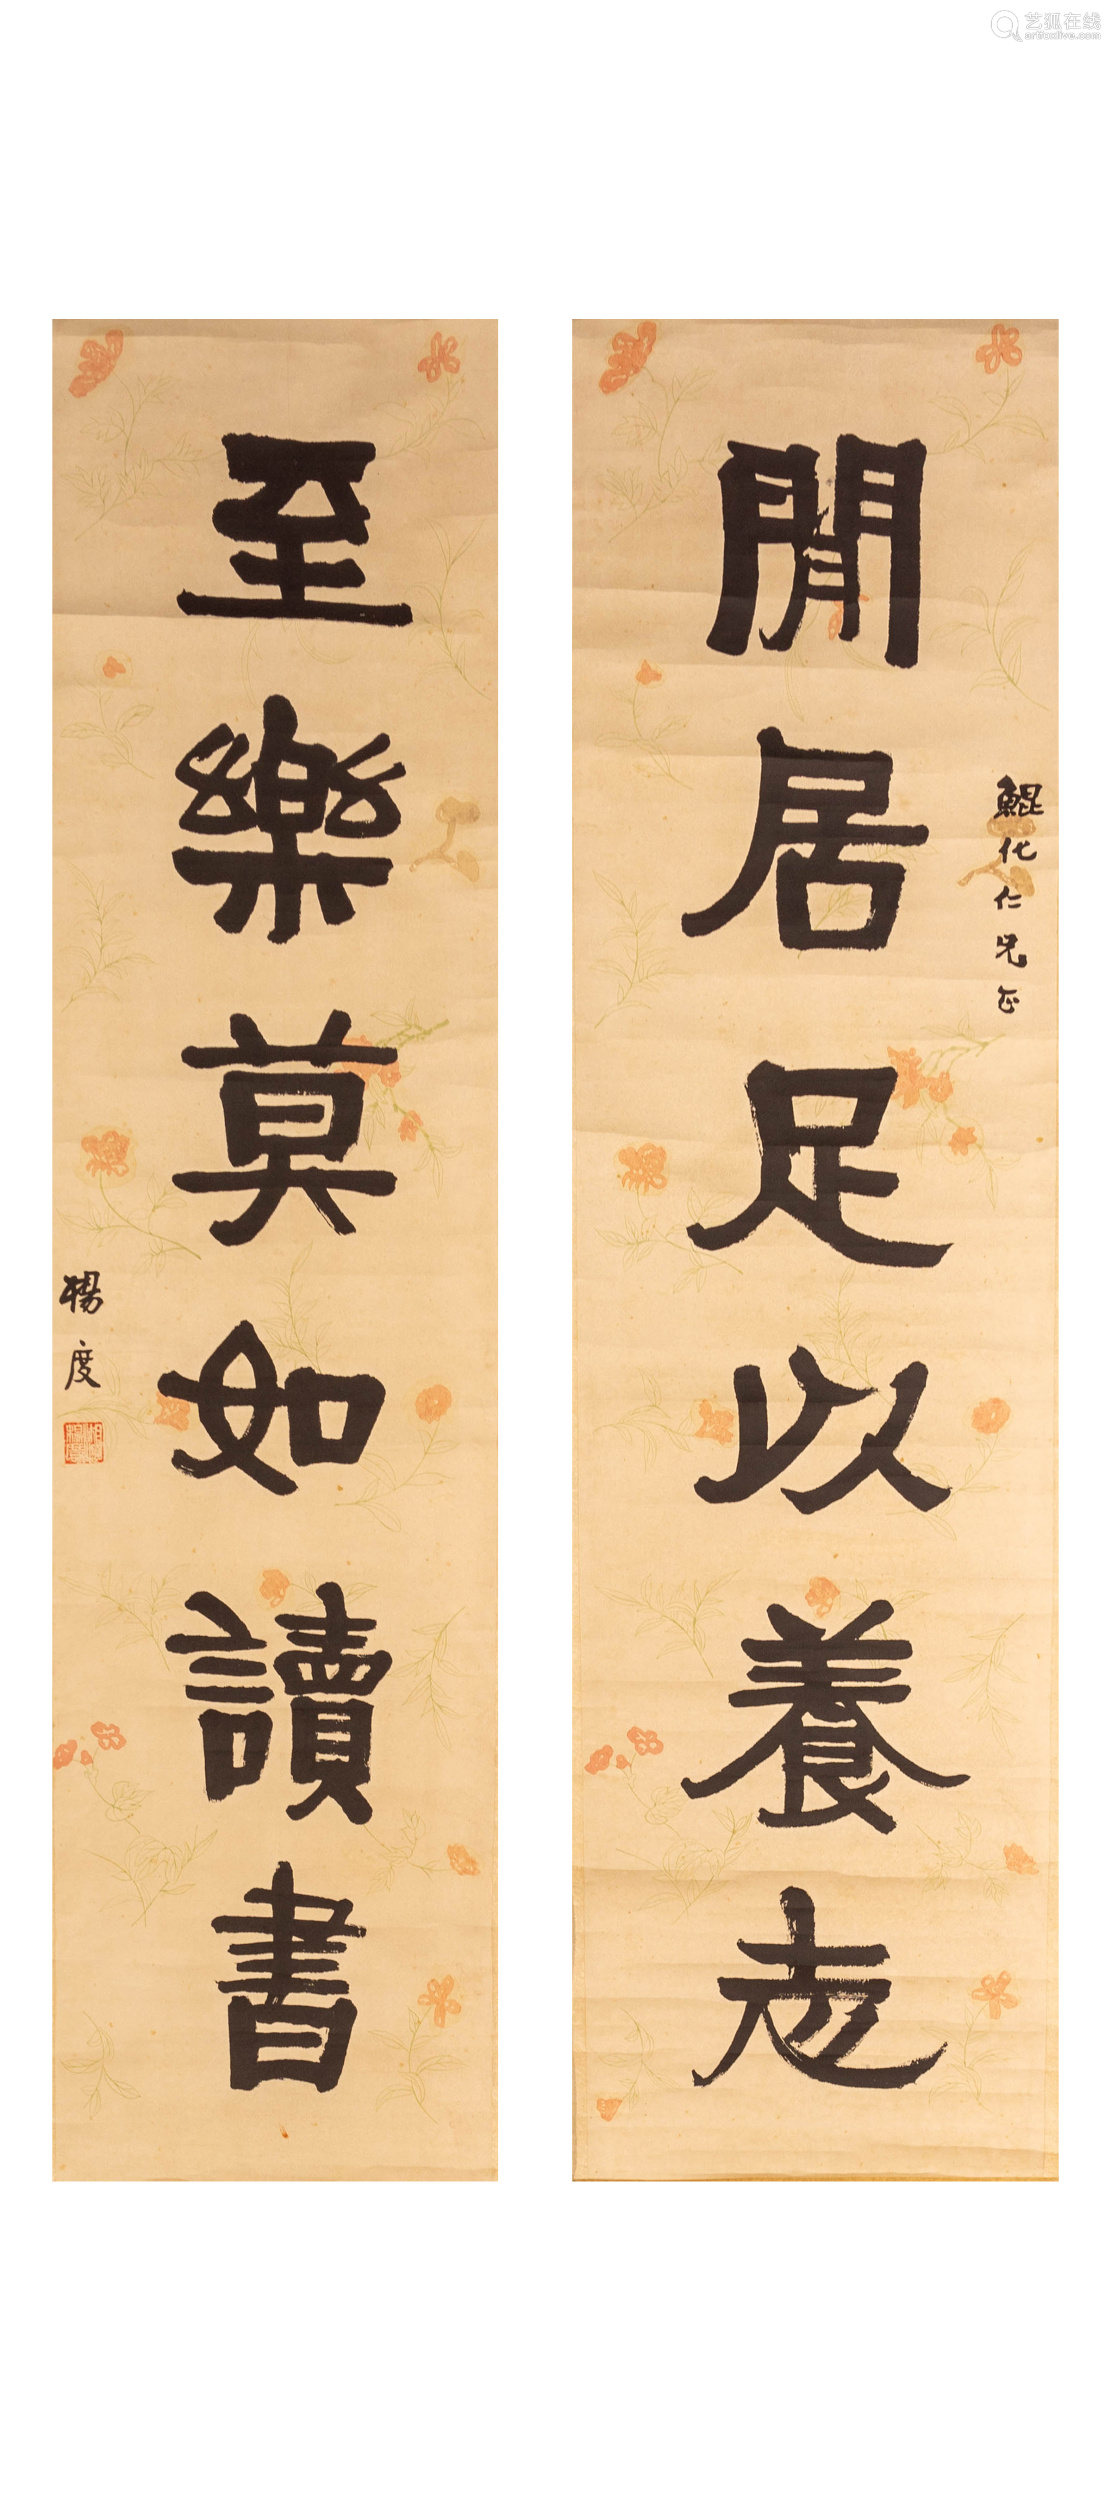 閒居足以養志
鯤化仁兄正
至樂莫如讀書
楊度
艺狐在线
artfoxlive.com